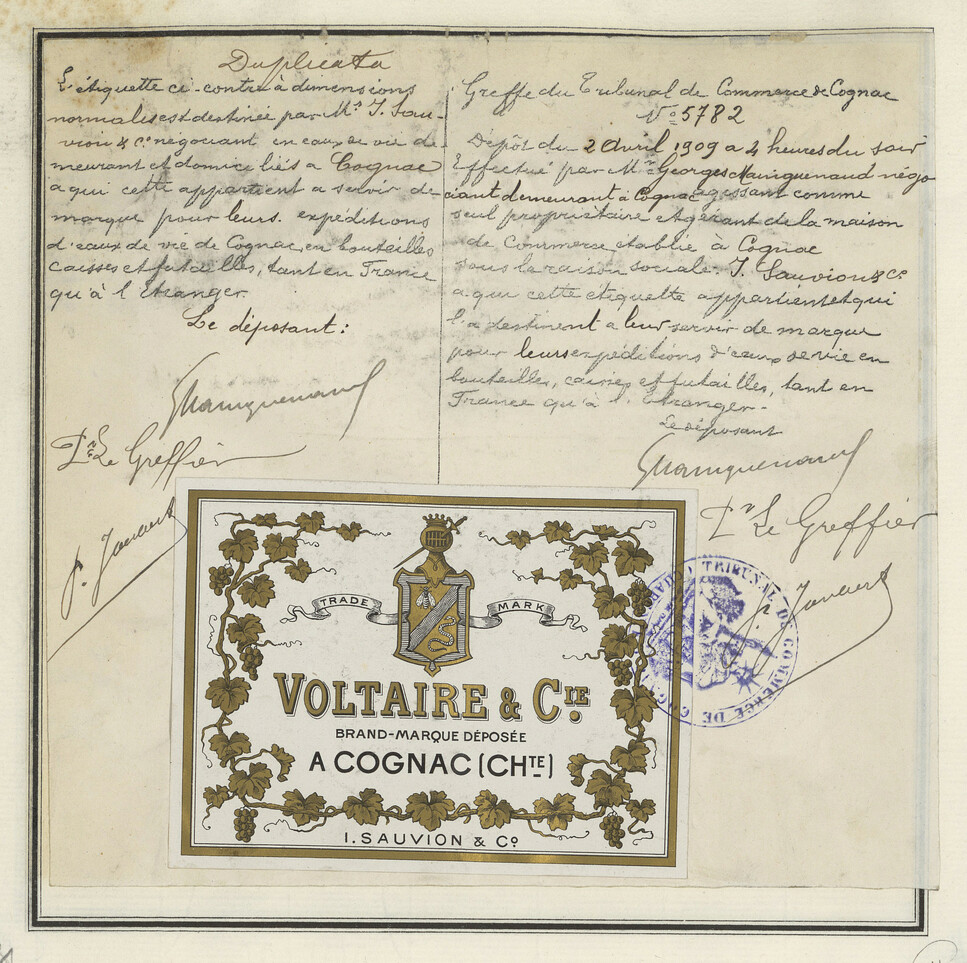 Duplicata
L'étiquette ci-contre à dimensions
normales est destinée par Mrs I. Sau-
vion & Co négociant en eaux de vie de-
meurant et domiciliés à Cognac
a qui cette appartient a servir de
marque pour leurs expéditions
d'eaux de vie de Cognac, en bouteilles
caisses et futailles, tant en France
qu'à l'Etranger.
Le déposant:
GMauriquenaud
Pr Le Greffier
Greffe du Tribunal de Commerce de Cognac
No 5782
Dépôt du 2 Avril 1909 a 4 heures du soir
Effectué par Mr Georges Mauriquenaud négo-
ciant demeurant à Cognac agissant comme
seul propriétaire et gérant de la maison
de Commerce établie à Cognac
sous la raison sociale: I. Sauvion & Co
a qui cette étiquette appartient et qui
l'a destinent a leur servir de marque
pour leurs expéditions d'eaux de vie en
bouteilles, caisses et futailles, tant en
France qu'à l'Etranger-
Le déposant
GMauriquenaud
Pr Le Greffier
TRIBUNAL DE COMMERCE DE
TRADE MARK
VOLTAIRE & CIE
BRAND-MARQUE DÉPOSÉE
A COGNAC (CHTE)
I. SAUVION & Co